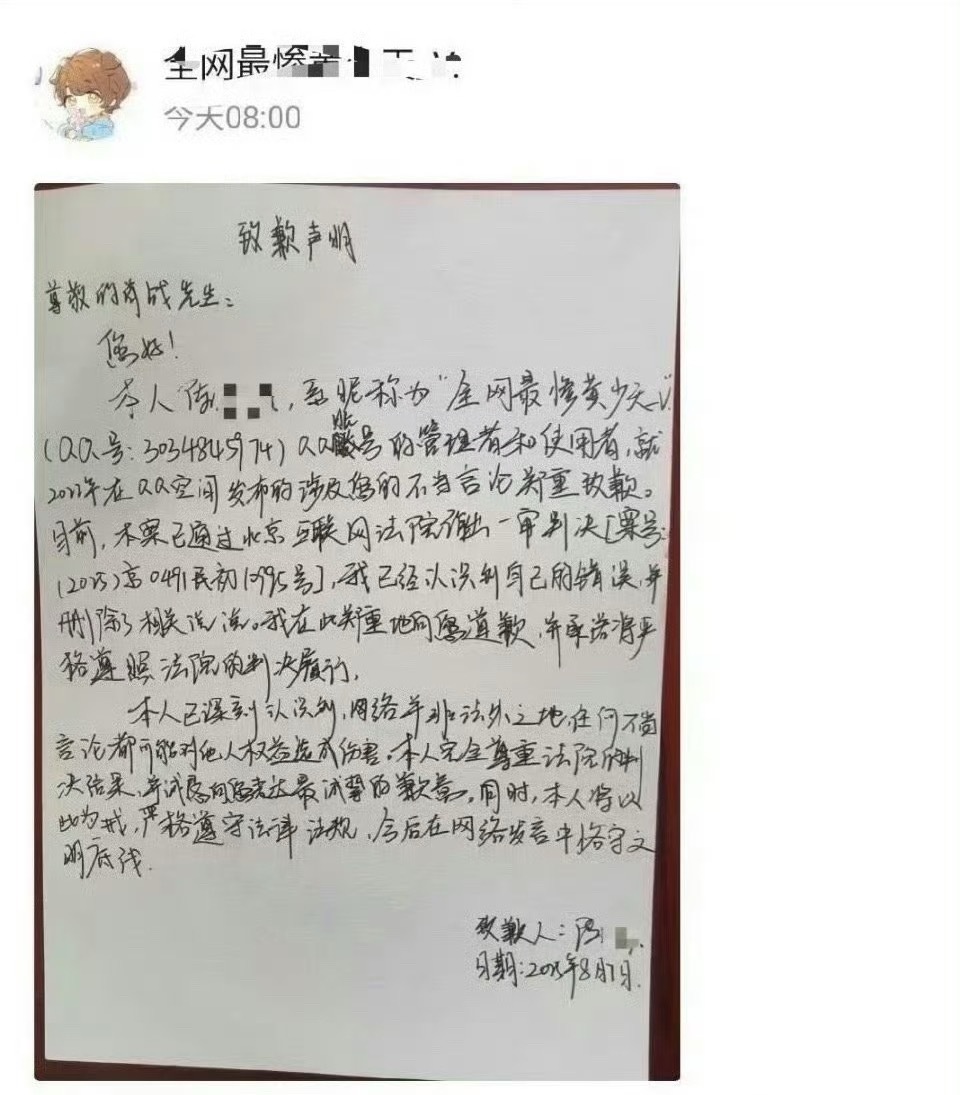 全网最惨
今天08:00
致歉声明
尊敬的肖战先生:
您好!
本人陈 ,系昵称为“全网最惨黄少天V”
(QQ号:3034845974)QQ账号的管理者和使用者,就
2022年在QQ空间发布的涉及您的不当言论郑重致歉。
目前,本案已通过北京互联网法院作出一审判决[案号:
(2025)京0491民初1995号],我已经认识到自己的错误,并
删除了相关说说。我在此郑重地向您道歉,并承诺将严
格遵照法院的判决履行。
本人已深刻认识到,网络并非法外之地,任何不当
言论都可能对他人权益造成伤害。本人完全尊重法院的判
决结果,并诚恳向您表达最诚挚的歉意。同时,本人将以
此为戒,严格遵守法律法规,今后在网络发言中恪守文
明底线.
致歉人:陈
日期:2025年8月7日.